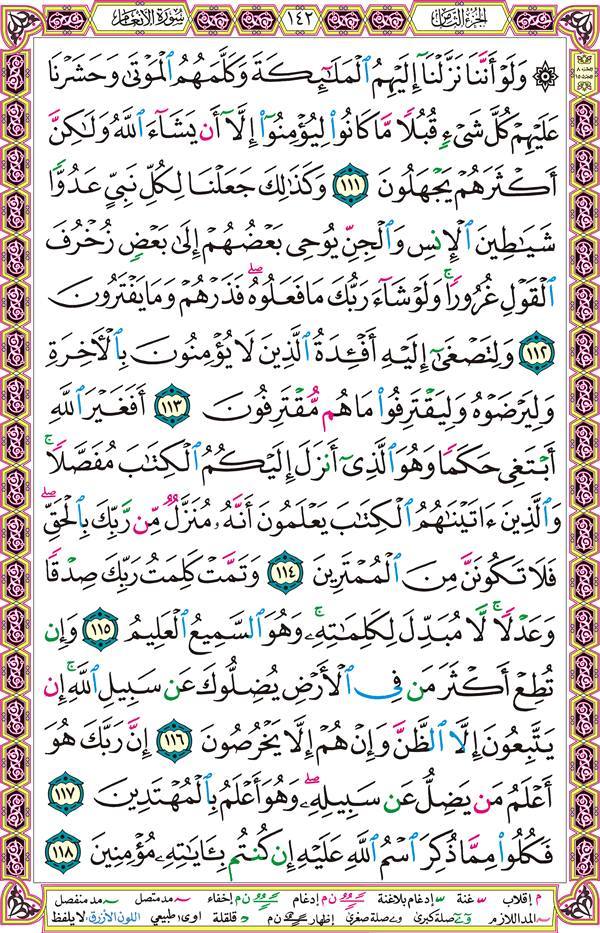 الجزء الثامن ١٤٢ سورة الأنعام
۞ وَلَوْ أَنَّنَا نَزَّلْنَآ إِلَيْهِمُ ٱلْمَلَٰٓئِكَةَ وَكَلَّمَهُمُ ٱلْمَوْتَىٰ وَحَشَرْنَا
عَلَيْهِمْ كُلَّ شَىْءٍ قُبُلًا مَّا كَانُوا۟ لِيُؤْمِنُوٓا۟ إِلَّآ أَن يَشَآءَ ٱللَّهُ وَلَٰكِنَّ
أَكْثَرَهُمْ يَجْهَلُونَ ١١١ وَكَذَٰلِكَ جَعَلْنَا لِكُلِّ نَبِىٍّ عَدُوًّا
شَيَٰطِينَ ٱلْإِنسِ وَٱلْجِنِّ يُوحِى بَعْضُهُمْ إِلَىٰ بَعْضٍ زُخْرُفَ
ٱلْقَوْلِ غُرُورًا ۚ وَلَوْ شَآءَ رَبُّكَ مَا فَعَلُوهُ ۖ فَذَرْهُمْ وَمَا يَفْتَرُونَ
١١٢ وَلِتَصْغَىٰٓ إِلَيْهِ أَفْـِٔدَةُ ٱلَّذِينَ لَا يُؤْمِنُونَ بِٱلْءَاخِرَةِ
وَلِيَرْضَوْهُ وَلِيَقْتَرِفُوا۟ مَا هُم مُّقْتَرِفُونَ ١١٣ أَفَغَيْرَ ٱللَّهِ
أَبْتَغِى حَكَمًا وَهُوَ ٱلَّذِىٓ أَنزَلَ إِلَيْكُمُ ٱلْكِتَٰبَ مُفَصَّلًا ۚ
وَٱلَّذِينَ ءَاتَيْنَٰهُمُ ٱلْكِتَٰبَ يَعْلَمُونَ أَنَّهُۥ مُنَزَّلٌ مِّن رَّبِّكَ بِٱلْحَقِّ ۖ
فَلَا تَكُونَنَّ مِنَ ٱلْمُمْتَرِينَ ١١٤ وَتَمَّتْ كَلِمَتُ رَبِّكَ صِدْقًا
وَعَدْلًا ۚ لَّا مُبَدِّلَ لِكَلِمَٰتِهِۦ ۚ وَهُوَ ٱلسَّمِيعُ ٱلْعَلِيمُ ١١٥ وَإِن
تُطِعْ أَكْثَرَ مَن فِى ٱلْأَرْضِ يُضِلُّوكَ عَن سَبِيلِ ٱللَّهِ ۚ إِن
يَتَّبِعُونَ إِلَّا ٱلظَّنَّ وَإِنْ هُمْ إِلَّا يَخْرُصُونَ ١١٦ إِنَّ رَبَّكَ هُوَ
أَعْلَمُ مَن يَضِلُّ عَن سَبِيلِهِۦ ۖ وَهُوَ أَعْلَمُ بِٱلْمُهْتَدِينَ ١١٧
فَكُلُوا۟ مِمَّا ذُكِرَ ٱسْمُ ٱللَّهِ عَلَيْهِ إِن كُنتُم بِـَٔايَٰتِهِۦ مُؤْمِنِينَ ١١٨
إقلاب غنة إدغام بلاغنة إدغام إخفاء مد متصل مد منفصل
المد اللازم صلة كبرى صلة صغرى إظهار قلقلة طبيعي اللون الأزرق: لا يلفظ